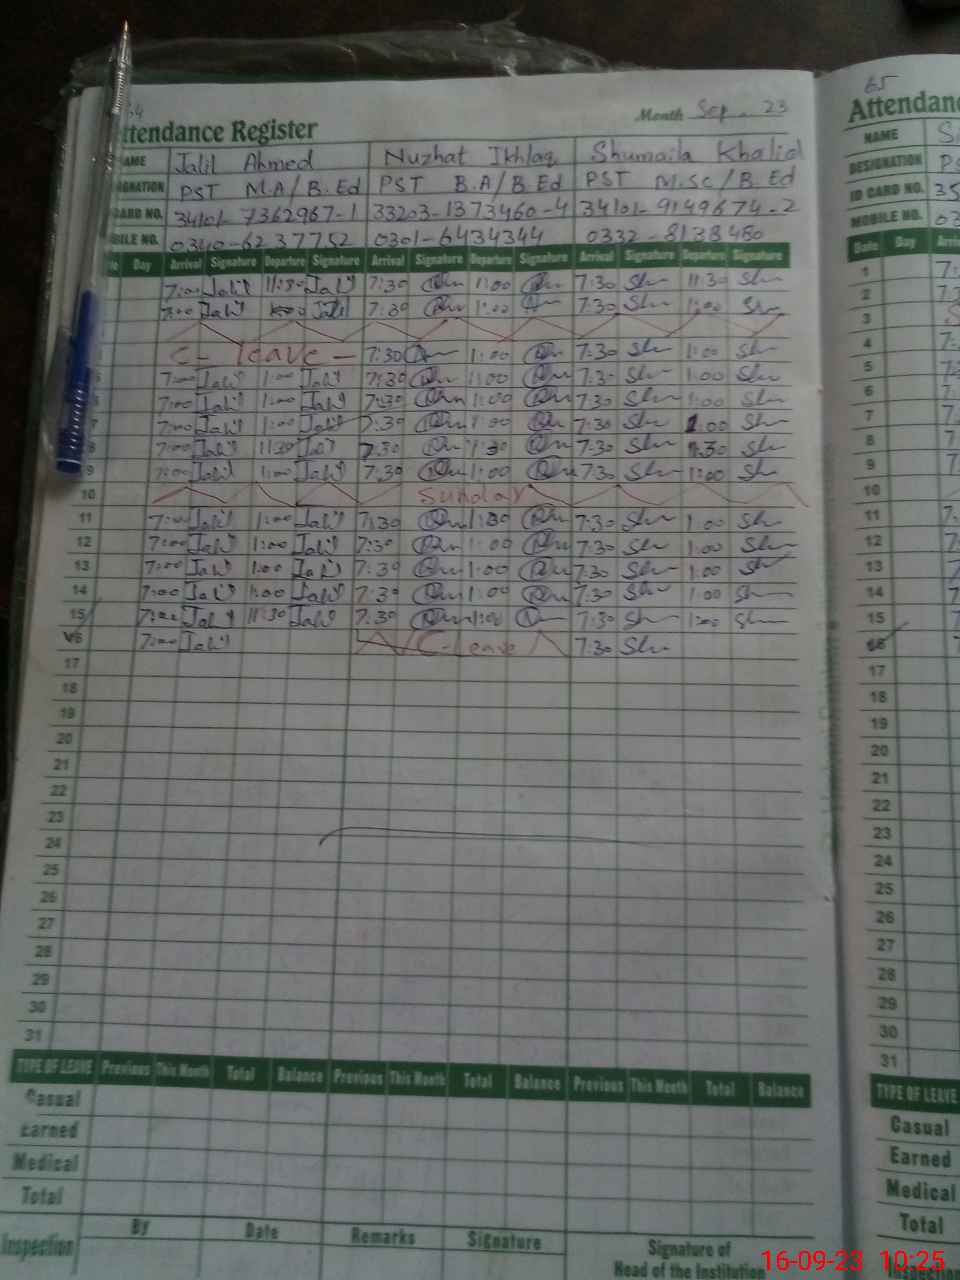 64
ttendance Register
Month Sep. 23
AME Jalil Ahmed Nuzhat Ikhlaq Shumaila Khalid
IGNATION PST M.A/B.Ed PST B.A/B.Ed PST M.SC/B.Ed
CARD NO. 34101-7362967-1 33203-1373460-4 34101-9149674-2
BILE NO. 0340-6237752 0301-6434344 0332-8138480
te Day Arrival Signature Departure Signature Arrival Signature Departure Signature Arrival Signature Departure Signature
7:00 Jalil 11:30 Jalil 7:30 1:00 7:30 Sh 11:30 Sh
7:00 Jalil Jalil 7:30 1:00 7:30 Sh 1:00 Sh
C-leave- 7:30 1:00 7:30 Sh 1:00 Sh
7:00 Jalil 1:00 Jalil 7:30 1:00 7:3 Sh 1:00 Sh
7:00 Jalil 1:00 Jalil 7:30 1:00 7:30 Sh 1:00 Sh
7 7:00 Jalil 1:00 Jalil 7:30 1:00 7:30 Sh 1:00 Sh
8 7:00 Jalil 11:30 Jalil 7:30 7:30 Sh Sh
9 7:00 Jalil 1:00 Jalil 7:30 1:00 7:30 Sh 1:00 Sh
10 Sunday
11 7:00 Jalil 1:00 Jalil 7:30 7:30 Sh 1:00 Sh
12 7:00 Jalil 1:00 Jalil 7:30 1:00 7:30 Sh 1:00 Sh
13 7:00 Jalil 1:00 Jalil 7:30 1:00 7:30 Sh 1:00 Sh
14 7:00 Jalil 1:00 Jalil 7:30 1:00 7:30 Sh 1:00 Sh
15 7:00 Jalil 11:30 Jalil 7:30 1:00 7:30 Sh 1:00 Sh
16 7:00 Jalil C-leave 7:30 Sh
17
18
19
20
21
22
23
24
25
26
27
28
29
30
31
TYPE OF LEAVE Previous This Month Total Balance Previous This Month Total Balance Previous This Month Total Balance
Casual
Earned
Medical
Total
Inspection By Date Remarks Signature Signature of
Head of the Institution
65
Attendan
NAME S
DESIGNATION PS
ID CARD NO. 35
MOBILE NO. 03
Date Day Arri
1 7:
2
3
4
5
6
7
8
9
10
11
12
13
14
15
16
17
18
19
20
21
22
23
24
25
26
27
28
29
30
31
TYPE OF LEAVE
Casual
Earned
Medical
Total
16-09-23 10:25